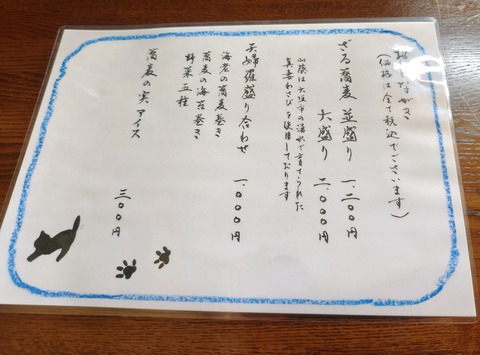 お品がき
(価格は全て税込でございます)
ざる蕎麦 並盛り 一、二〇〇円
大盛り 二、〇〇〇円
山葵は大垣市の湧水で育てられた
真妻わさびを使用しております
天婦羅盛り合わせ 一、〇〇〇円
海老の蕎麦巻き
蕎麦の海苔巻き
野菜五種
蕎麦の実アイス 三〇〇円